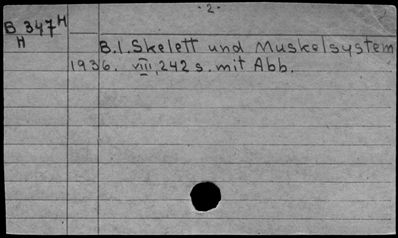 -2-
B 347H
H
B.1. Skelett und Muskelsystem
1936. VIII, 242 s. mit Abb.